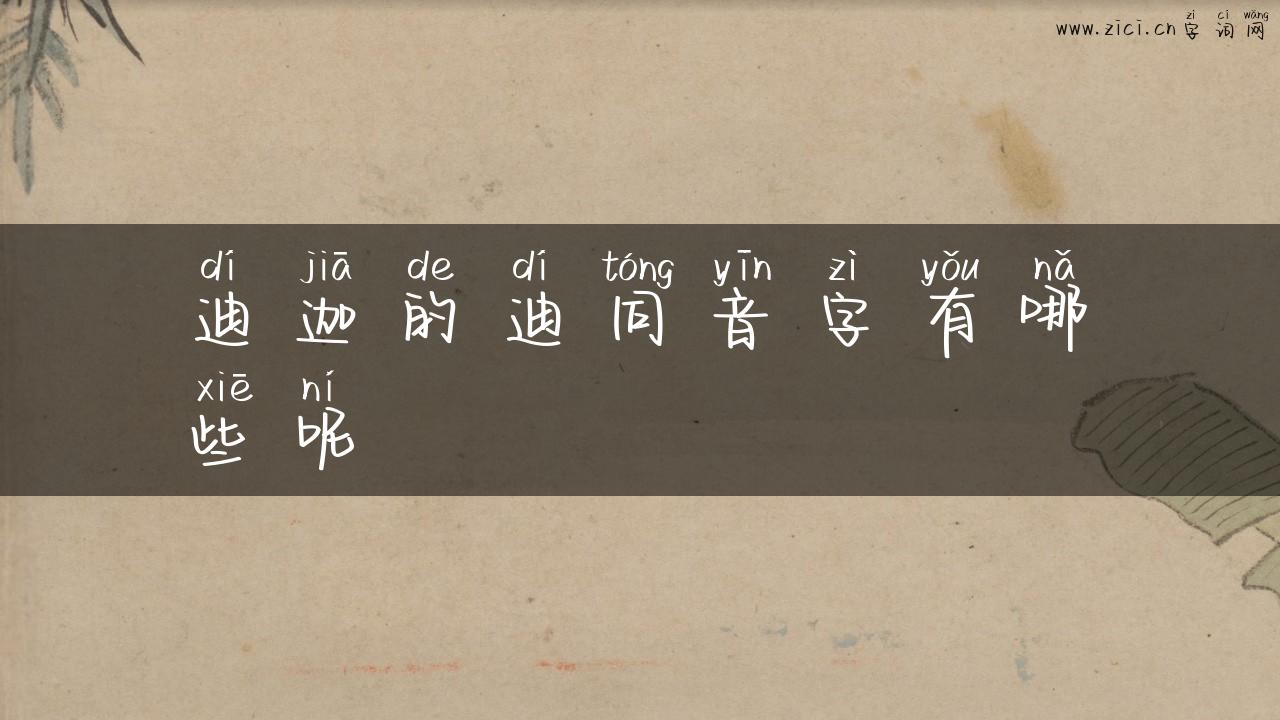 zì cí wǎng
www.zici.cn 字 词 网
dí jiā de dí tóng yīn zì yǒu nǎ
迪 迦 的 迪 同 音 字 有 哪
xiē ní
些 呢